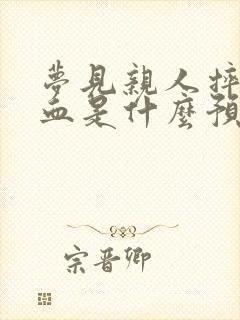 夢見親人摔
血是什麼預
宗晋卿